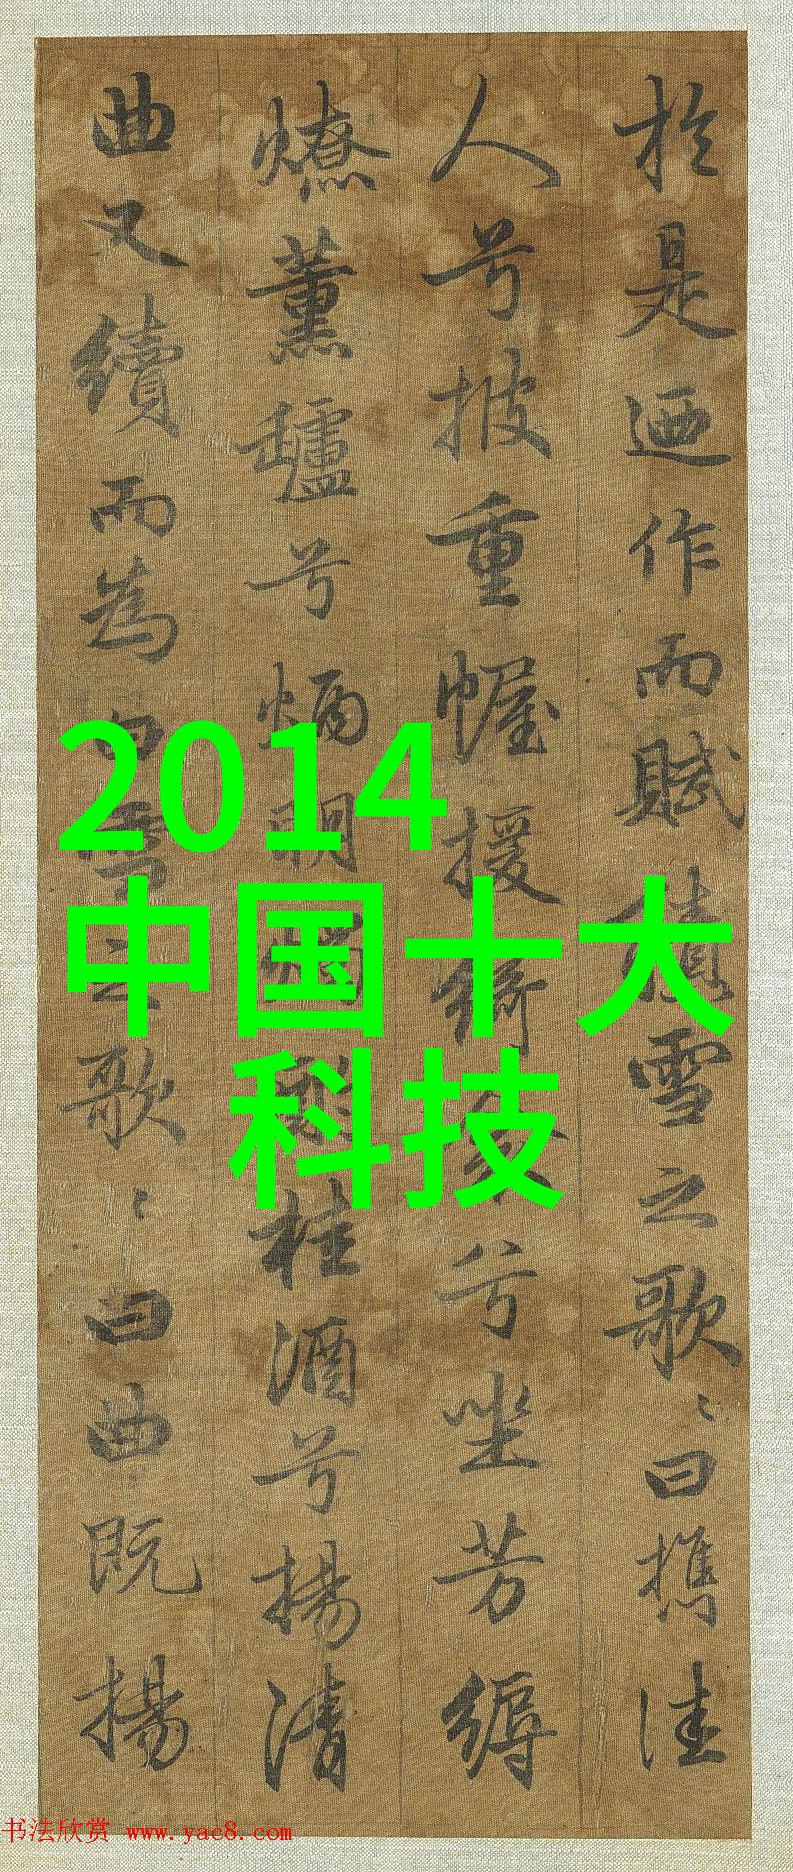 於是迺作而賦積雪之歌〻曰攜佳
人兮披重幄援綺衾兮坐芳縟
燎薰鑪兮炳明燭酌桂酒兮揚清
曲又續而為白雪之歌〻曰曲既揚
2014
中国十大
科技
书法欣赏 www.yac8.com